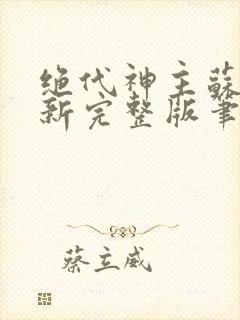 绝代神主蘇
新完整版筆
蔡立威